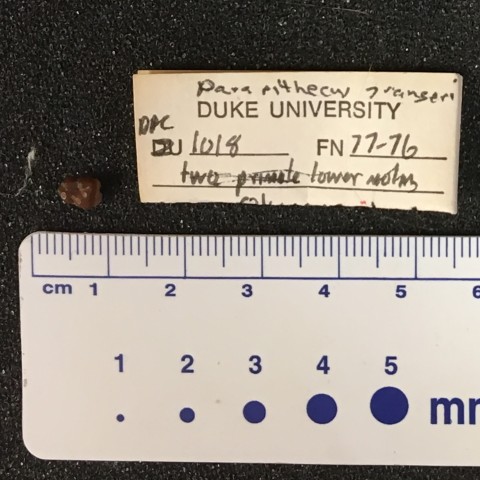 Parapithecus grangeri
DUKE UNIVERSITY
DPC
DU 1018 FN 77-76
two primate lower molars
cm 1 2 3 4 5 6
1 2 3 4 5
mm